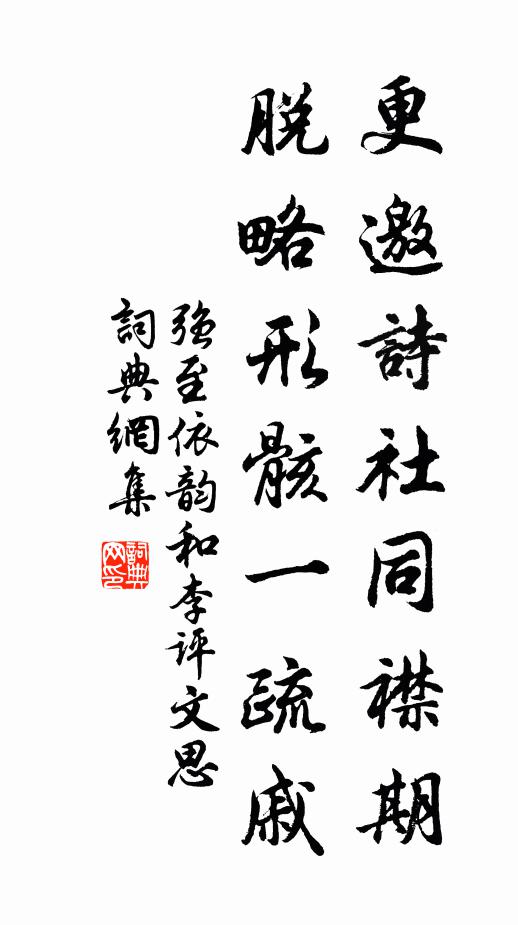 更邀詩社同襟期
脱略形骸一疏戚
强至依韵和李评文思
詞典網集
詞典网印